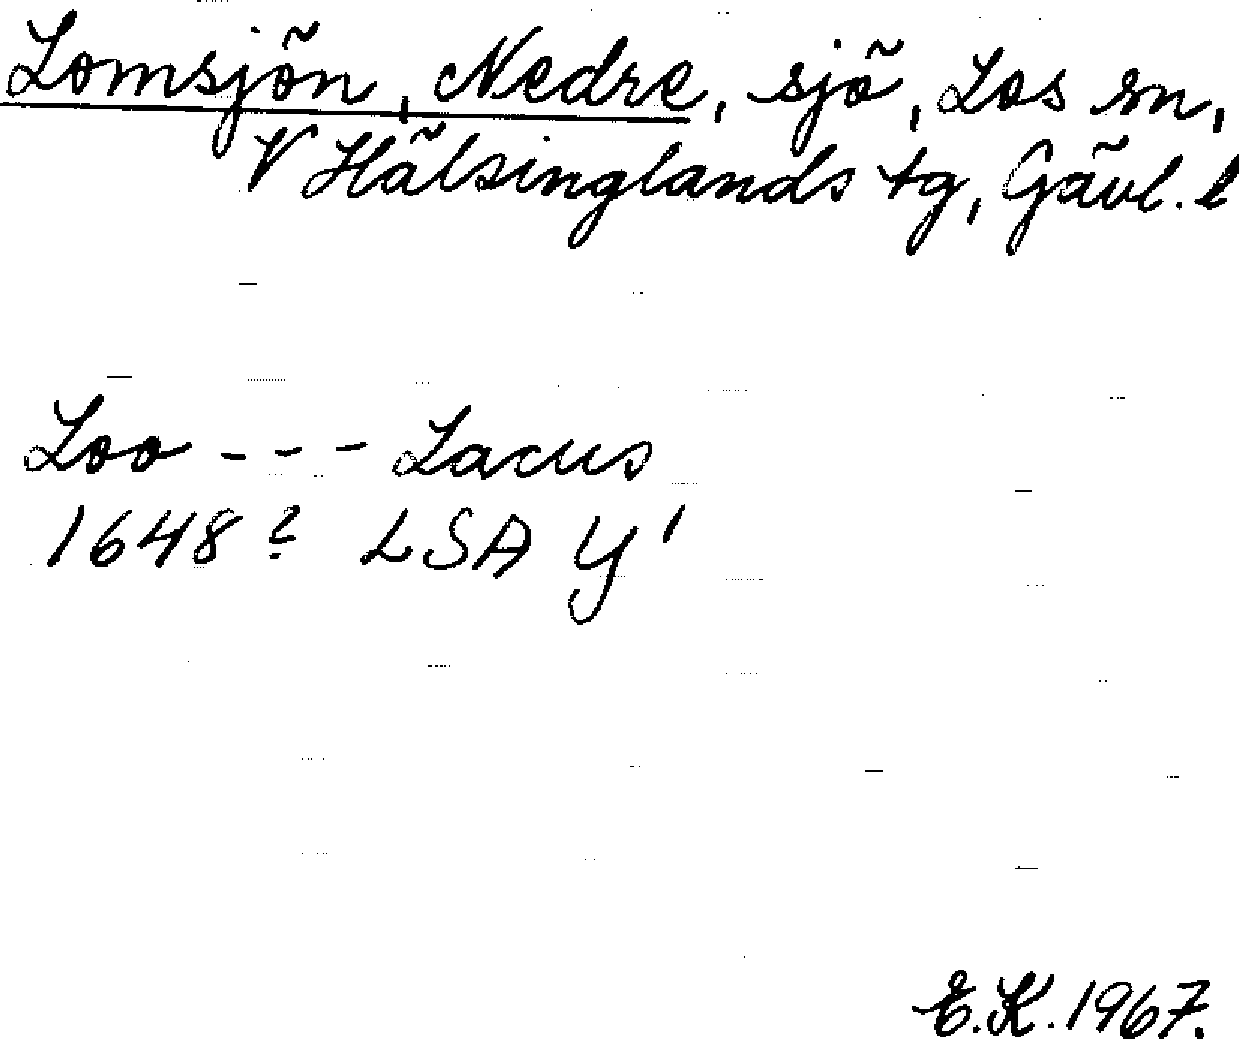 Lomsjön, Nedre, sjö, Los sn,
V Hälsinglands tg, Gävl. l
Loo - - - Lacus
1648? LSA Y'
E.K. 1967.